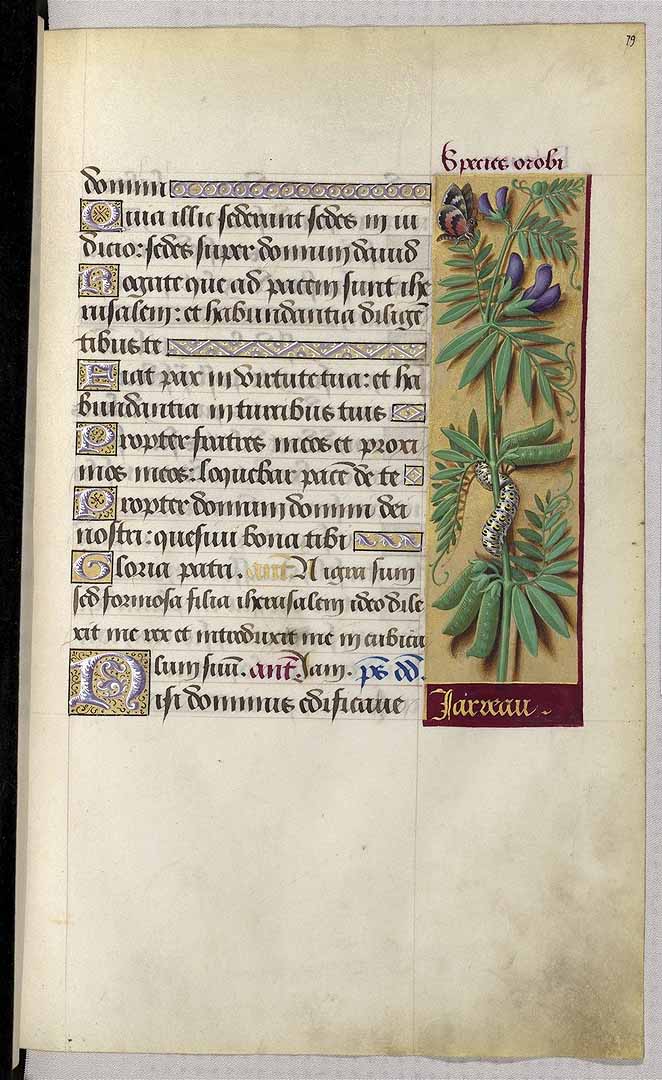 79
Species orobi
domini
Quia illic sederunt sedes in iu
dicio: sedes super domum dauid
Rogate que ad pacem sunt ihe
rusalem: et habundantia diligē
tibus te
Fiat pax in virtute tua: et ha
bundantia in turribus tuis
Propter fratres meos et proxi
mos meos: loquebar pacē de te
Propter domum domini dei
nostri: quesiui bona tibi
Gloria patri. ant̄. Nigra sum
sed formosa filia iherusalem ideo dile
xit me rex et introduxit me in cubicu
lum suū. ant̄. Iam. ps dd̄.
Nisi dominus edificaue
Jarreau